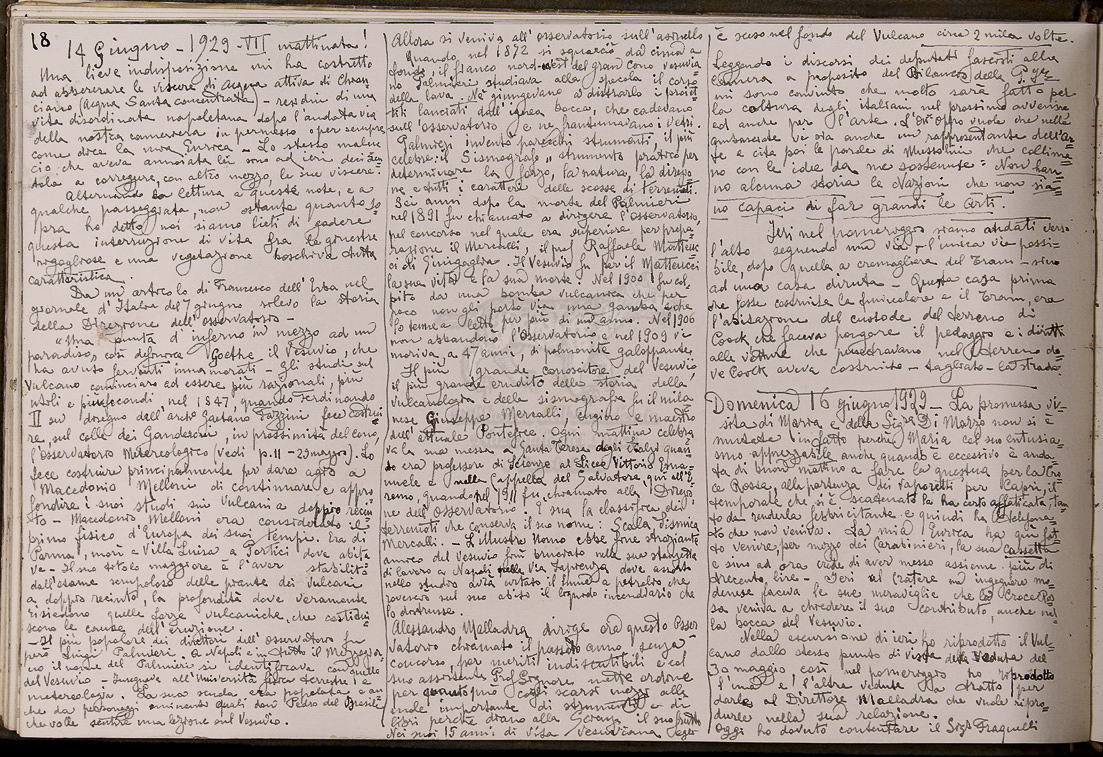 18
14 Giugno - 1929 - VII mattinata!
Una lieve indisposizione mi ha costretto
ad assicurare le viscere di acqua attiva di Chian
ciano (Acqua Santa concentrata) - residui di una
vita disordinata napoletana dopo l'andata via
della nostra cameriera in permesso o per sempre
come dice la mia Enrica - Lo stesso malan
cio che aveva annoiata lei sono ad ieri
a correggere, con altro mezzo, le sue viscere.
Alternando la lettura a queste note, e a
qualche passeggiata, non ostante quanto so=
pra ho detto, noi siamo lieti di godere
questa interruzione di vita fra le ginestre
rigogliose e una vegetazione boschiva tutta
caratteristica.
Da un articolo di Francesco dell'Erba nel
giornale d'Italia del 7 giugno rilevo la storia
della Direzione dell'osservatorio -
"Una punta d'inferno in mezzo ad un
paradiso, così definiva Goethe il Vesuvio, che
ha avuto ferventi innamorati - Gli studi sul
Vulcano cominciaro ad essere più razionali, più
utili e più fecondi nel 1847, quando Ferdinando
II su disegno dell'arch. Gaetano Fazzini fece costrui
re, sul colle dei Canteroni, in prossimità del cono,
l'Osservatorio Metereologico (vedi p. 11 - 23 maggio). Lo
fece costruire principalmente per dare agio a
Macedonio Melloni di continuare e appro
fondire i suoi studi sui vulcani a doppio recin
to - Macedonio Melloni era considerato il
primo fisico d'Europa dei suoi tempi. Era di
Parma, morì a Villa Luisa a Portici dove abita
va - Il suo titolo maggiore è l'aver stabilito
dall'esame scrupoloso delle piante dei vulcani
a doppio recinto, la profondità dove veramente
risiedono quelle forze vulcaniche, che costitui
scono le cause dell'eruzione.
- Il più popolare dei direttori dell'osservatorio fu
però Luigi Palmieri. A Napoli e in tutto il Mezzogior
no il nome del Palmieri si identificava con quello
del Vesuvio - Insegnava all'Università fisica terrestre e
metereologia. La sua scuola era popolata e an
che da personaggi eminenti quali Don Pedro del Brasile
che volle sentire una lezione sul Vesuvio.
Allora si veniva all'osservatorio sull'asinello
Quando nel 1872 si squarciò da cima a
fondo, il fianco nord-ovest del gran Cono vesuvia
no Palmieri studiava alla specola il corso
della lava. Nè giungevano a distrarlo i proiet
tili lanciati dall'ignea bocca che cadevano
sull'osservatorio e ne frantumavano i vetri.
Palmieri inventò parecchi strumenti, il più
celebre: il Sismografo" strumento pratico per
determinare la forza, la natura, la direzio
ne e tutti i caratteri delle scosse di terremoti.
Sei anni dopo la morte del Palmieri
nel 1891 fu chiamato a dirigere l'osservatorio
pel concorso nel quale era superiore per prepa
razione il Mercalli, il prof. Raffaele Matteuc
ci di Sinigaglia. Il Vesuvio fu per il Matteucci
la sua vita e la sua morte. Nel 1900 fu col=
pito da una bomba vulcanica che per
poco non gli portò via una gamba e che
lo tenne a letto per più di un anno. Nel 1906
non abbandonò l'osservatorio e nel 1909 vi
moriva, a 47 anni, di polmonite galoppante.
Il più grande conoscitore del Vesuvio
il più grande erudito della storia della
vulcanologia e della sismografia fu il mila
nese Giuseppe Mercalli, cugino e maestro
dell'attuale Pontefice. Ogni mattina celebra
va la sua messa a Santa Teresa degli Scalzi quan
do era professore di scienze al Liceo Vittorio Ema=
nuele e nella Cappella del Salvatore, qui all'E
remo, quando nel 1911 fu chiamato alla Direzio
ne dell'osservatorio. È sua la classifica dei
terremoti che conserva il suo nome: Scala sismica
Mercalli. - L'illustre uomo ebbe fine straziante
amico del Vesuvio fu bruciato nella sua stanzetta
di lavoro a Napoli nella Via Sapienza dove assorto
nello studio avrà urtato il lume a petrolio che
rovesciò sul suo abito il liquido incendiario che
lo distrusse.
Alessandro Malladra dirige ora questo Osser
vatorio chiamato il passato anno, senza
concorso, per meriti indiscutibili e col
suo assistente Prof. Signore mette ordine
per quanto può cogli scarsi mezzi alla
mole importante di strumenti e di
libri perchè diano alla Scienza il suo frutto
Nei suoi 15 anni di vita vesuviana
è sceso nel fondo del Vulcano circa 2 mila volte.
Leggendo i discorsi dei deputati fascisti alla
Camera a proposito del Bilancio della
mi sono convinto che molto sarà fatto per
la coltura degli italiani nel prossimo avvenire
ed anche per l'arte. L'On. Oppo vuole che nelle
ambasciate vi sia anche un rappresentante dell'Ar
te e cita poi le parole di Mussolini che collima
no con le idee da me sostenute: Non han
no alcuna storia le Nazioni che non sia=
no capaci di far grandi le Arti.
Ieri nel pomeriggio siamo andati verso
l'alto seguendo una via - l'unica via possi=
bile, dopo quella a cremagliera del Tram - sino
ad una casa diruta - Questa casa prima
che fosse costruita la funicolare e il Tram, era
l'abitazione del custode del terreno di
Coock che faceva pagare il pedaggio e i diritti
alle vetture che penetravano nel terreno do=
ve Coock aveva costruito - tagliato - la strada.
Domenica 16 giugno 1929 - La promessa vi=
sita di Maria e della Sig.ra Di Marzo non si è
mutata in fatto perchè Maria col suo entusia=
smo apprezzabile anche quando è eccessivo è anda
ta di buon mattino a fare la questua per la Cro
ce Rossa, alla partenza dei vaporetti per Capri, il
temporale che si è scatenato la ha certo affaticata, tan
to da renderla febbricitante e quindi ha telefona=
to che non veniva. La mia Enrica ha qui fat
to venire, per mezzo dei Carabinieri, la sua cassetta
e sino ad ora crede di aver messo assieme più di
trecento lire - Ieri al Cratere un ingegnere mo=
denese faceva le sue meraviglie che la Croce Ros
sa veniva a chiedere il suo contributo, anche nel
la bocca del Vesuvio.
Nella escursione di ieri ho riprodotto il Vul=
cano dallo stesso punto di vista della Veduta del
30 maggio così nel pomeriggio ho riprodotto
l'una e l'altra veduta a tratto per
darle al Direttore Malladra che vuole ripro=
durle nella sua relazione.
Oggi ho dovuto contentare il Sig. Fraquelli